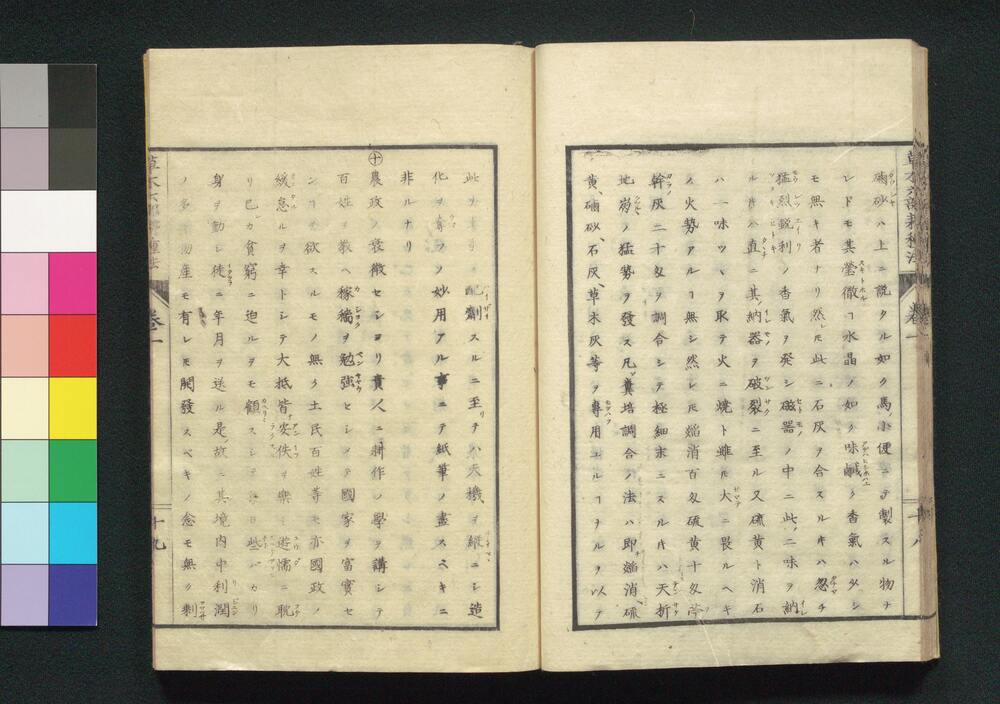 磠砂ハ上ニ説タル如ク馬ノ小便ニテ製スル物ナ
レドモ其瑩徹ヿ水晶ノ如ク味鹹ク香氣ハタシ
モ無キ者ナリ然レ𪜈此ニ石灰ヲ合スルキハ忽チ
猛烈鋭利ノ香氣ヲ発シ磁器ノ中ニ此ノ二味ヲ納
ルヽ直ニ其ノ納器ヲ破裂ニ至ル又硫黄ト消石
ハ一味ツヽヲ取テ火ニ燒ト雖𪜈大ニ畏ルヘキ
ス火勢アルヿ無シ然レ𪜈熖消百匁硫黄十匁
幹灰二十匁ヲ調合シテ極細末ニスルキハ天折
地ノ猛勢ヲ發ス凡ソ糞培調合ノ法ハ即熖消硫
黄、磠砂、石灰、草木灰等ヲ專用ユルヿナルヲ以テ
此ヲ配劑スルニ至リテハ天機ヲニシ造
化ヲ奪フノ妙用アル事ニテ紙筆ノ盡スヘキニ
非ルナリ
㊉農政ノ衰微セシヨリ貴人ニ耕作ノ學ヲ講シテ
百姓ヲ教ヘ稼穡ヲ勉強セシメテ國家ヲ富實セ
ンヿヲ欲スルモノ無ク土民百姓等モ亦國政ノ
緩怠ルヲ幸トシテ大抵皆安佚ヲ樂ミ遊懦ニ耽
リ已カ貧窮ニ迫ルヲモ顧スシテ日些バカリ
身ヲ動シ徒ニ年月ヲ送ル是ノ故ニ其境内中利潤
ノ多キ物産モ有レ𪜈開發スベキノ念モ無ク剩
草木六部耕種法
卷一
十八
卷一
十九